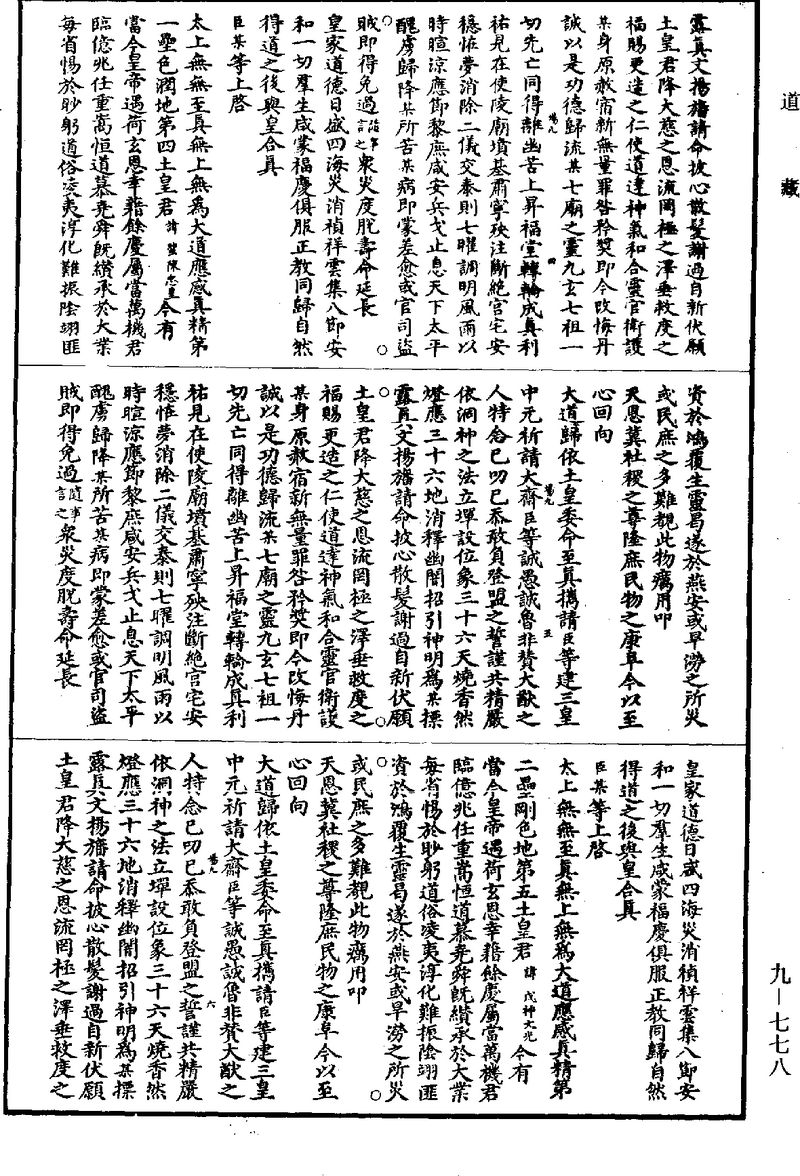 道藏
露真文揚旛請命披心散髮謝過自新伏願
土皇君降大慈之恩流罔極之澤垂救度之
福賜更造之仁使道達神氣和合靈官衛護
某身原赦宿新無量罪咎矜獎即令改悔丹
誠以是功德歸流某七廟之靈九玄七祖一
切先亡同得離幽苦上昇福堂轉輪成真利
祐見在使陵廟墳墓肅寧殃注斷絕宮宅安
穩恠夢消除二儀交泰則七曜調明風雨以
時暄涼應節黎庶咸安兵戈止息天下太平
醜虜歸降某所苦某病即蒙差愈或官司盜
賊即得免過隨事言之衆災度脫壽命延長
皇家道德日盛四海災消禎祥雲集八節安
和一切羣生咸蒙福慶俱服正教同歸自然
得道之後與皇合真
臣某等上啓
太上無無至真無上無為大道應感真精第
一壘色潤地第四土皇君諱今有
當今皇帝遇荷玄恩幸藉餘慶屬當萬機君
臨億兆任重嵩恒道慕堯舜既纘承於大業
每省惕於眇躬道俗凌夷淳化難振陰翊匪
資於鴻覆生靈曷遂於燕安或旱澇之所災
或民庶之多難覩此物癘用叩
天恩冀社稷之尊隆庶民物之康阜今以至
心回向
大道歸依土皇委命至真攜請臣等建三皇
中元祈請大齋臣等誠愚誠魯非贊大猷之
人特念已叨已忝敢負登盟之誓謹共精嚴
依洞神之法立墠設位象三十六天燒香然
燈應三十六地消釋幽闇招引神明為某摽
露真文揚旛請命披心散髮謝過自新伏願
土皇君降大慈之恩流罔極之澤垂救度之
福賜更造之仁使道達神氣和合靈官衛護
某身原赦宿新無量罪咎矜獎即令改悔丹
誠以是功德歸流某七廟之靈九玄七祖一
切先亡同得離幽苦上昇福堂轉輪成真利
祐見在使陵廟墳墓肅寧殃注斷絕宮宅安
穩恠夢消除二儀交泰則七曜調明風雨以
時暄涼應節黎庶咸安兵戈止息天下太平
醜虜歸降某所苦某病即蒙差愈或官司盜
賊即得免過隨事言之衆災度脫壽命延長
皇家道德日盛四海災消禎祥雲集八節安
和一切羣生咸蒙福慶俱服正教同歸自然
得道之後與皇合真
臣某等上啓
太上無無至真無上無為大道應感真精第
二壘剛色地第五土皇君諱今有
當今皇帝遇荷玄恩幸藉餘慶屬當萬機君
臨億兆任重嵩恒道慕堯舜既纘承於大業
每省惕於眇躬道俗凌夷淳化難振陰翊匪
資於鴻覆生靈曷遂於燕安或旱澇之所災
或民庶之多難覩此物癘用叩
天恩冀社稷之尊隆庶民物之康阜今以至
心回向
大道歸依土皇委命至真攜請臣等建三皇
中元祈請大齋臣等誠愚誠魯非贊大猷之
人特念已叨已忝敢負登盟之誓謹共精嚴
依洞神之法立墠設位象三十六天燒香然
燈應三十六地消釋幽闇招引神明為某摽
露真文揚旛請命披心散髮謝過自新伏願
土皇君降大慈之恩流罔極之澤垂救度之
九—七七八